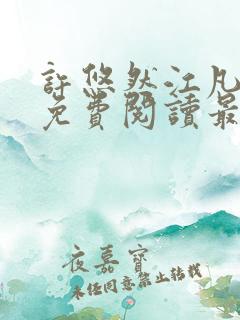 許悠然江凡
免費閱讀最
夜嘉寶
未任同意禁止轉載